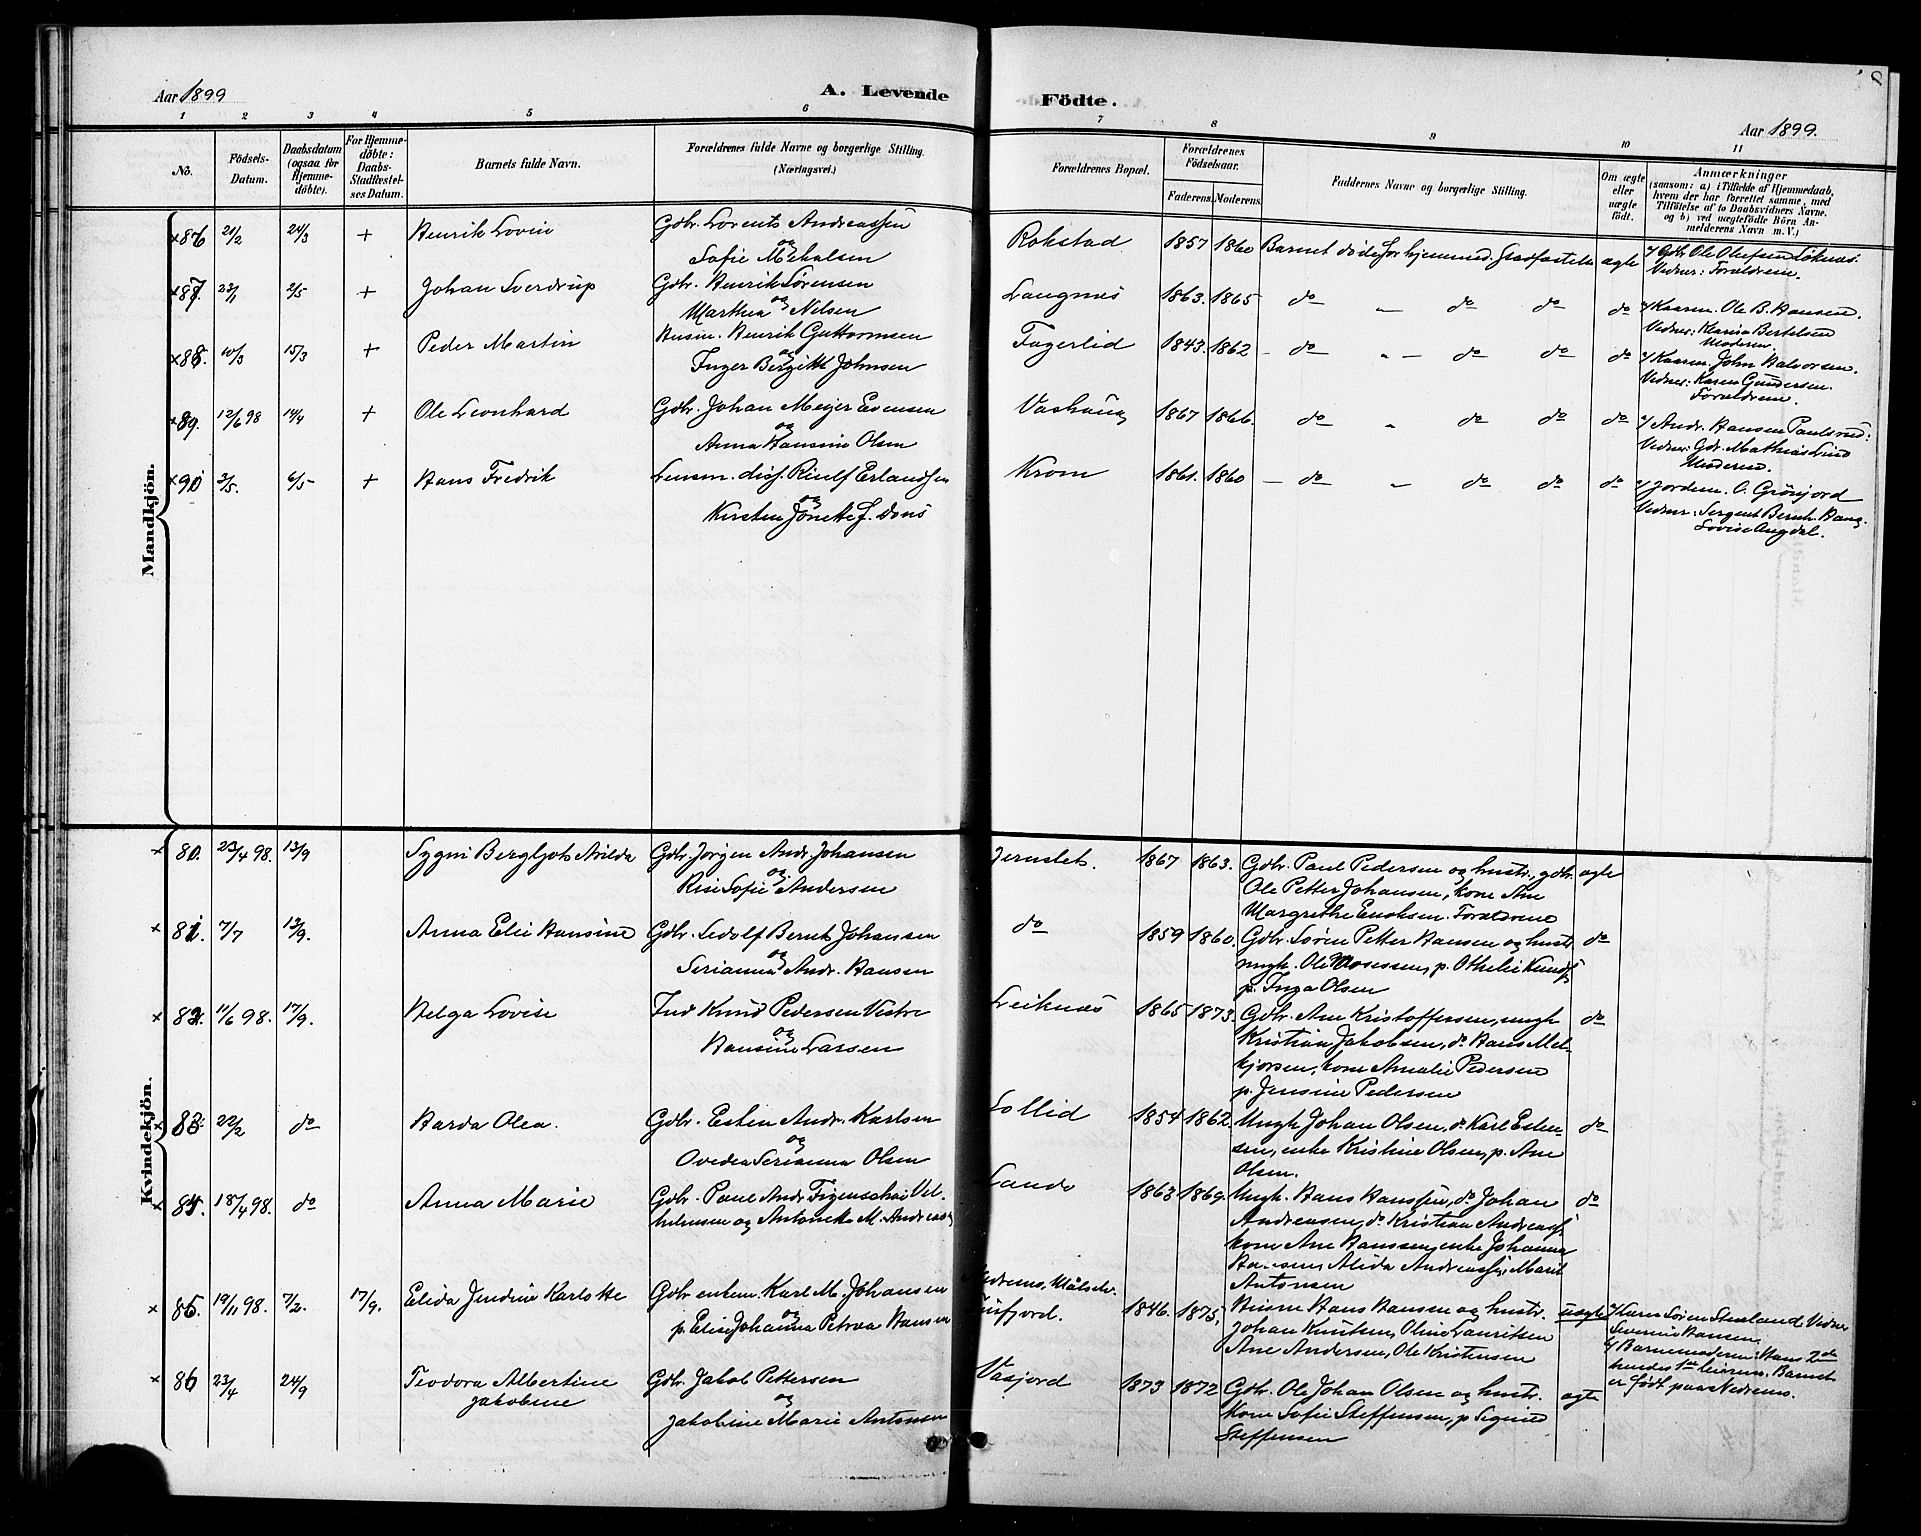 Aar 1899
A. Levende
Födte.
Aar 1899.
1 2 3 4 5 6 7 8 9 10 11
No.
Födsels-Datum.
Daabsdatum (ogsaa for Hjemmedöbte).
For Hjemmedöbte: Daabs-Stadfæstelses Datum.
Barnets fulde Navn.
Forældrenes fulde Navne og borgerlige Stilling.
(Næringsvei.)
Forældrenes Bopæl.
Forældrenes Födselsaar.
Faderens. Moderens.
Faddernes Navne og borgerlige Stilling.
Om ægte eller uægte födt.
Anmærkninger
(saasom: a) i Tilfælde af Hjemmedaab, hvem der har forrettet samme, med Tilföielse af to Daabsvidners Navne, og b) ved uægtefödte Börn Anmelderens Navn m. V.)
Mandkjön.
86 21/2 24/3 + Henrik Lovin Gdbr. Lorents Andreassen
og
Sofie Mikalsen Rokstad 1857 1860 Barnet döde för hjemmed. Stadfæstelse ægte
v/ Gdbr. Ole Olufsen Löknæs.
Vidner: Forældrene.
87. 23/1 2/5 + Johan Sverdrup Gdbr. Henrik Sörensen
og
Marthea Nilsen Langnes 1863. 1865 do " do do do
v/ Kaarm. Ole B. Hansen.
Vidner: Klara Bertelsen
Moderen.
88. 10/3 15/3 + Peder Martin Husm. Henrik Guttormsen
og
Inger Bergitte Johnsen Fagerlid 1843. 1862 do " do do do
v/ Kaarm. John Halvorsen.
Vidner: Karen Gundersen.
Forældrene.
89. 12/6 98 14/4 + Ole Leonhard Gdbr. Johan Meyer Evensen
og
Anna Hansine Olsen Vashaug 1867 1866. do " do do do
v/ Andr. Hansen Paulsrud:
Vidner: Gdr. Mathias Lund
Moderen.
90 3/5. 6/5 + Hans Fredrik Lensm. disp. Riulf Erlandsen
og
Kirsten Jonette f. Dons Krom 1861. 1860 do " do do do
v/ Jordem. O. Grönjord
Vidner: Sergent Bernh. Haug.
Lovise Augdal.
Kvindekjön.
80. 23/4 98. 13/9 Sygni Bergljot Arilda Gdbr. Jörgen Andr. Johansen
og
Risi Sofie Andersen Jernslet. 1867 1863. Gdbr. Paul Pedersen og hustr., gdbr. ægte
Ole Petter Johansen, kone Ane
Margrethe Enoksen. Forældrene
81. 7/7 13/9. Anna Elie Hansine Gdbr. Sedolf Bernt Johansen
og
Serianna Andr. Hansen do 1859 1860. Gdbr. Sören Petter Hansen og hustr. do
ungk. Ole Mosessen, p. Othelie Knuds.
p. Inga Olsen
82. 11/6 98. 17/9. Helga Lovise Ind. Knud Pedersen Vestre
og
Hansine Larsen Leiknæs 1865 1873. Gdbr. Ane Kristoffersen, ungk. do
Kristian Jakobsen, do Hans Mel-
kjorsen, kone Amalie Pedersen
p. Jensine Pedersen
83. 22/2 do Harda Olea. Gdbr. Esten Andr. Karlsen
og
Ovedea Serianna Olsen Sollid 1854 1862. Ungk. Johan Olsen, do Karl Esten- do
sen, enke Kristine Olsen, p. Ane
Olsen.
84. 18/4 98. do Anna Marie Gdbr. Paul Andr. Figenschau Vel-
helmsen og Antonette M. Andreass. Sando 1863 1869. Ungk. Hans Hanssen, do Johan do
Andreasen, do Kristian Andreass.
kone Ane Hanssen, enke Johanna
Hansen, Alida Andreassen, Marit
Antonsen
85. 19/11 98. 7/2. 17/9. Elida Jendine Karlotte Gdbr. enkem. Karl M. Johansen
og
p. Elise Johanna Petrea Hansen Nedrems, Målselv.
1846. 1875, Husm. Hans Hansen og hustr. uægte
Johan Knutsen, Oline Lauritsen
Ane Andersen, Ole Kristensen
v/ Kaarm. Sören Stenland. Vidner
Severine Hansen.
v/ Barnemoderen: Hans 2de
hendes 1ste leierm. Barnet
er födt paa Nedrems.
86 23/4 24/9 Teodora Albertine
Jakobine Gdbr. Jakob Pettersen
og
Jakobine Marie Antonsen Vasjord 1873 1872 Gdbr. Ole Johan Olsen og hustr. ægte
Kone Sofie Steffensen, p. Signe
Steffensen